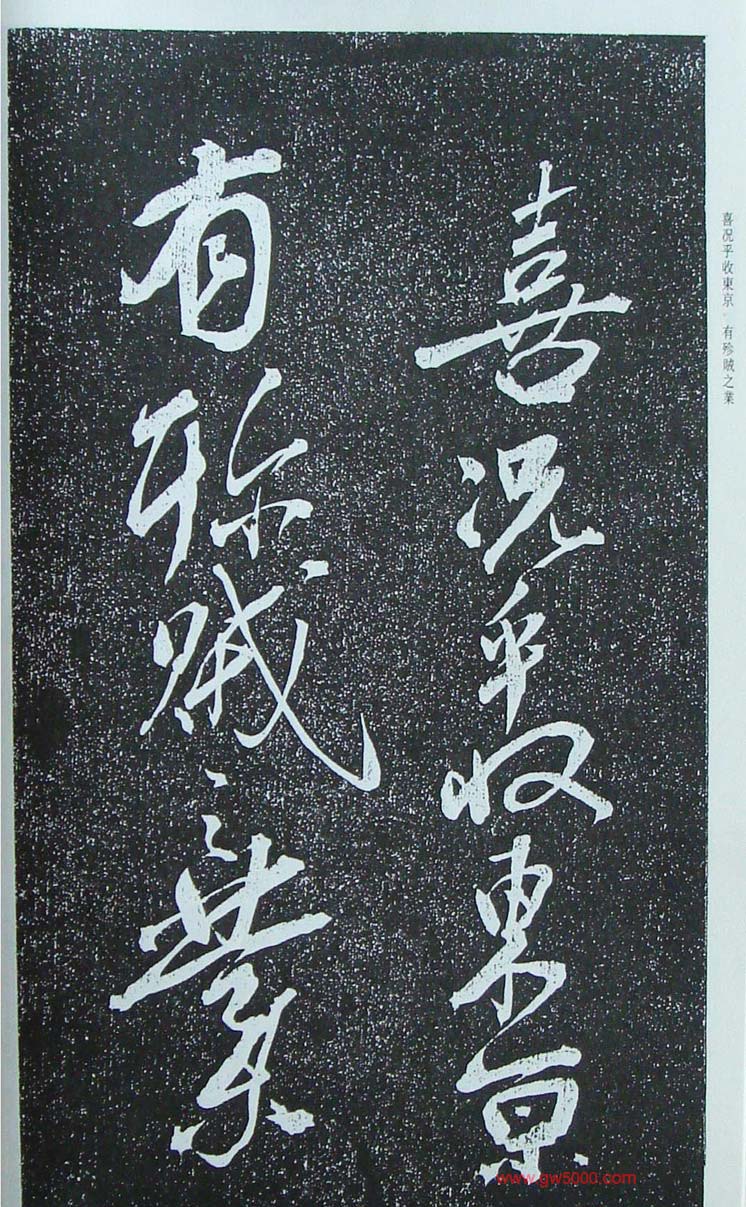 喜况乎收東京
有殄賊之業
喜况乎收東京 有殄賊之業
www.gw5000.com